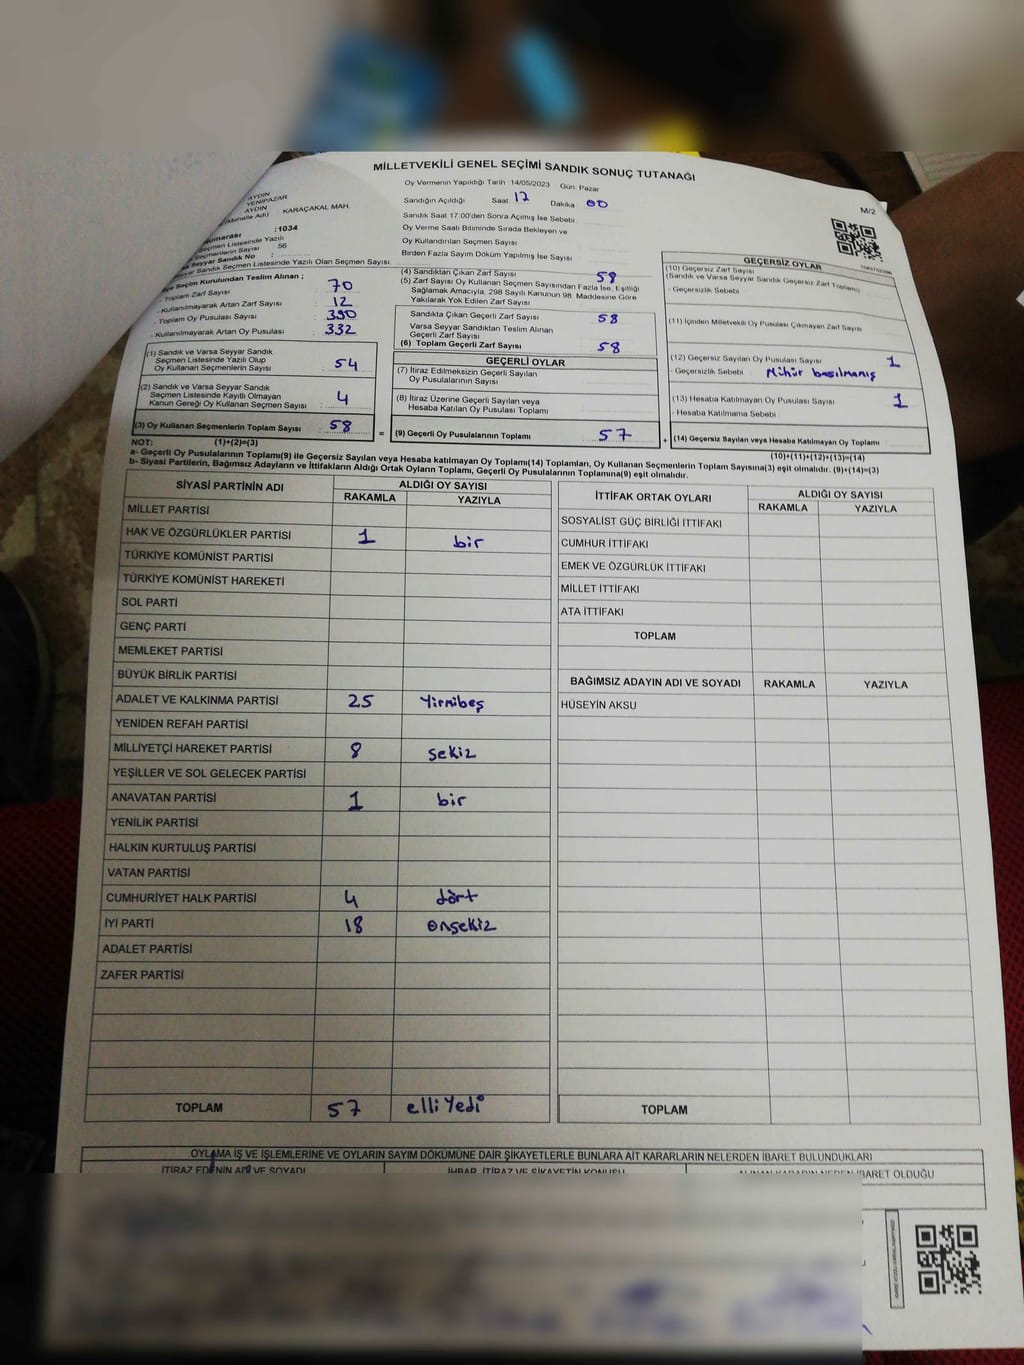 MİLLETVEKİLİ GENEL SEÇİMİ SANDIK SONUÇ TUTANAĞI
M/2
AYDIN
YENİPAZAR
AYDIN
(Mahalle Adı) KARAÇAKAL MAH.
:1034
Seçmen Listesinde Yazılı
Seçmenlerin Sayısı 56
Seyyar Sandık No :
Seyyar Sandık Seçmen Listesinde Yazılı Olan Seçmen Sayısı
Seçim Kurulundan Teslim Alınan ;
- Toplam Zarf Sayısı 70
- Kullanılmayarak Artan Zarf Sayısı 12
- Toplam Oy Pusulası Sayısı 390
- Kullanılmayarak Artan Oy Pusulası 332
(1) Sandık ve Varsa Seyyar Sandık
Seçmen Listesinde Yazılı Olup
Oy Kullanan Seçmenlerin Sayısı : 54
(2) Sandık ve Varsa Seyyar Sandık
Seçmen Listesinde Kayıtlı Olmayan
Kanun Gereği Oy Kullanan Seçmen Sayısı : 4
(3) Oy Kullanan Seçmenlerin Toplam Sayısı : 58
Oy Vermenin Yapıldığı Tarih 14/05/2023 Gün: Pazar
Sandığın Açıldığı Saat 17 Dakika 00
Sandık Saat 17.00'den Sonra Açımış İse Sebebi
Oy Verme Saati Bitiminde Sırada Bekleyen ve
Oy Kullandırılan Seçmen Sayısı
Birden Fazla Sayım Döküm Yapılmış İse Sayısı
(4) Sandıktan Çıkan Zarf Sayısı 58
(5) Zarf Sayısı Oy Kullanan Seçmen Sayısından Fazla İse, Eşitliği
Sağlamak Amacıyla, 298 Sayılı Kanunun 98. Maddesine Göre
Yakılarak Yok Edilen Zarf Sayısı
Sandıkta Çıkan Geçerli Zarf Sayısı 58
Varsa Seyyar Sandıktan Teslim Alınan
Geçerli Zarf Sayısı
(6) Toplam Geçerli Zarf Sayısı 58
GEÇERLİ OYLAR
(7) İtiraz Edilmeksizin Geçerli Sayılan
Oy Pusulalarının Sayısı
(8) İtiraz Üzerine Geçerli Sayılan veya
Hesaba Katılan Oy Pusulası Toplamı
= (9) Geçerli Oy Pusulalarının Toplamı 57
GEÇERSİZ OYLAR
(10) Geçersiz Zarf Sayısı
(Sandık ve Varsa Seyyar Sandık Geçersiz Zarf Toplamı)
- Geçersizlik Sebebi
(11) İçinden Milletvekili Oy Pusulası Çıkmayan Zarf Sayısı
(12) Geçersiz Sayılan Oy Pusulası Sayısı 1
- Geçersizlik Sebebi Mühür basılmamış
(13) Hesaba Katılmayan Oy Pusulası Sayısı 1
- Hesaba Katılmama Sebebi
+ (14) Geçersiz Sayılan veya Hesaba Katılmayan Oy Toplamı
NOT: (1)+(2)=(3) (10)+(11)+(12)+(13)=(14)
a- Geçerli Oy Pusulalarının Toplamı(9) ile Geçersiz Sayılan veya Hesaba katılmayan Oy Toplamı(14) Toplamları, Oy Kullanan Seçmenlerin Toplam Sayısına(3) eşit olmalıdır. (9)+(14)=(3)
b- Siyasi Partilerin, Bağımsız Adayların ve İttifakların Aldığı Ortak Oyların Toplamı, Geçerli Oy Pusulalarının Toplamına(9) eşit olmalıdır.
SİYASİ PARTİNİN ADI ALDIĞI OY SAYISI
RAKAMLA YAZIYLA
MİLLET PARTİSİ
HAK VE ÖZGÜRLÜKLER PARTİSİ 1 bir
TÜRKİYE KOMÜNİST PARTİSİ
TÜRKİYE KOMÜNİST HAREKETİ
SOL PARTİ
GENÇ PARTİ
MEMLEKET PARTİSİ
BÜYÜK BİRLİK PARTİSİ
ADALET VE KALKINMA PARTİSİ 25 Yirmibeş
YENİDEN REFAH PARTİSİ
MİLLİYETÇİ HAREKET PARTİSİ 8 sekiz
YEŞİLLER VE SOL GELECEK PARTİSİ
ANAVATAN PARTİSİ 1 bir
YENİLİK PARTİSİ
HALKIN KURTULUŞ PARTİSİ
VATAN PARTİSİ
CUMHURİYET HALK PARTİSİ 4 dört
İYİ PARTİ 18 onsekiz
ADALET PARTİSİ
ZAFER PARTİSİ
TOPLAM 57 elliyedi
İTTİFAK ORTAK OYLARI ALDIĞI OY SAYISI
RAKAMLA YAZIYLA
SOSYALİST GÜÇ BİRLİĞİ İTTİFAKI
CUMHUR İTTİFAKI
EMEK VE ÖZGÜRLÜK İTTİFAKI
MİLLET İTTİFAKI
ATA İTTİFAKI
TOPLAM
BAĞIMSIZ ADAYIN ADI VE SOYADI RAKAMLA YAZIYLA
HÜSEYİN AKSU
TOPLAM
OYLAMA İŞ VE İŞLEMLERİNE VE OYLARIN SAYIM DÖKÜMÜNE DAİR ŞİKAYETLERLE BUNLARA AİT KARARLARIN NELERDEN İBARET BULUNDUKLARI
İTİRAZ EDENİN ADI VE SOYADI İHBAR, İTİRAZ VE ŞİKAYETİN KONUSU ALINAN KARARIN NEDEN İBARET OLDUĞU